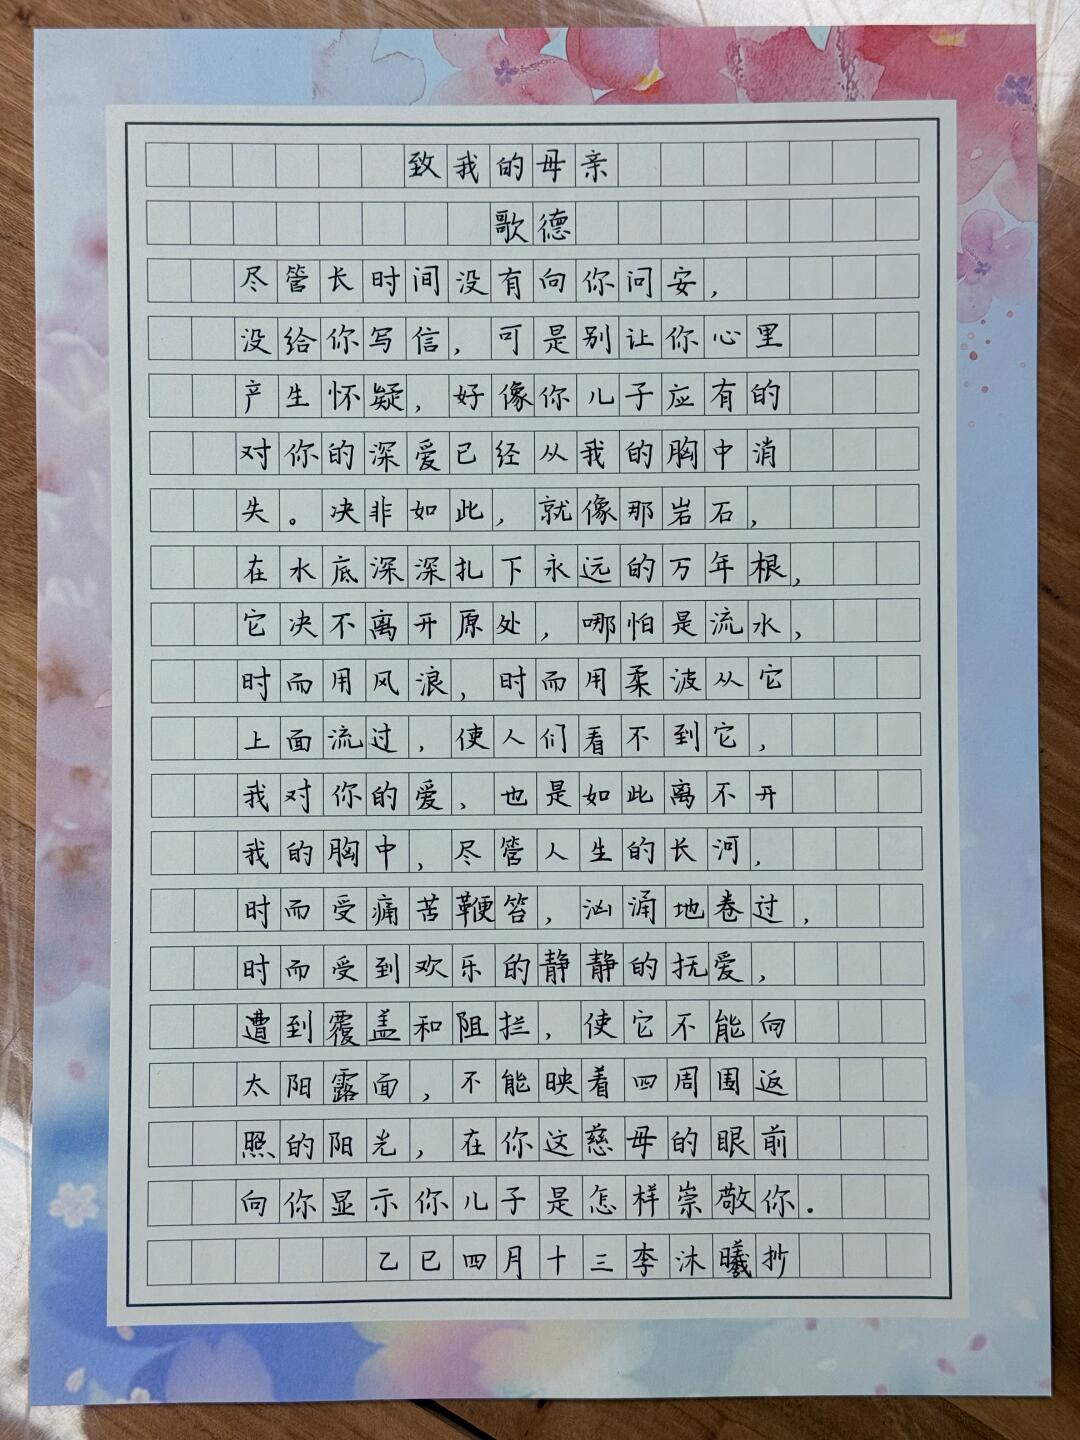 致我的母亲
歌德
尽管长时间没有向你问安，
没给你写信，可是别让你心里
产生怀疑，好像你儿子应有的
对你的深爱已经从我的胸中消
失。决非如此，就像那岩石，
在水底深深扎下永远的万年根，
它决不离开原处，哪怕是流水，
时而用风浪，时而用柔波从它
上面流过，使人们看不到它，
我对你的爱，也是如此离不开
我的胸中，尽管人生的长河，
时而受痛苦鞭笞，汹涌地卷过，
时而受到欢乐的静静的抚爱，
遭到覆盖和阻拦，使它不能向
太阳露面，不能映着四周围返
照的阳光，在你这慈母的眼前
向你显示你儿子是怎样崇敬你.
乙巳四月十三李沐曦抄